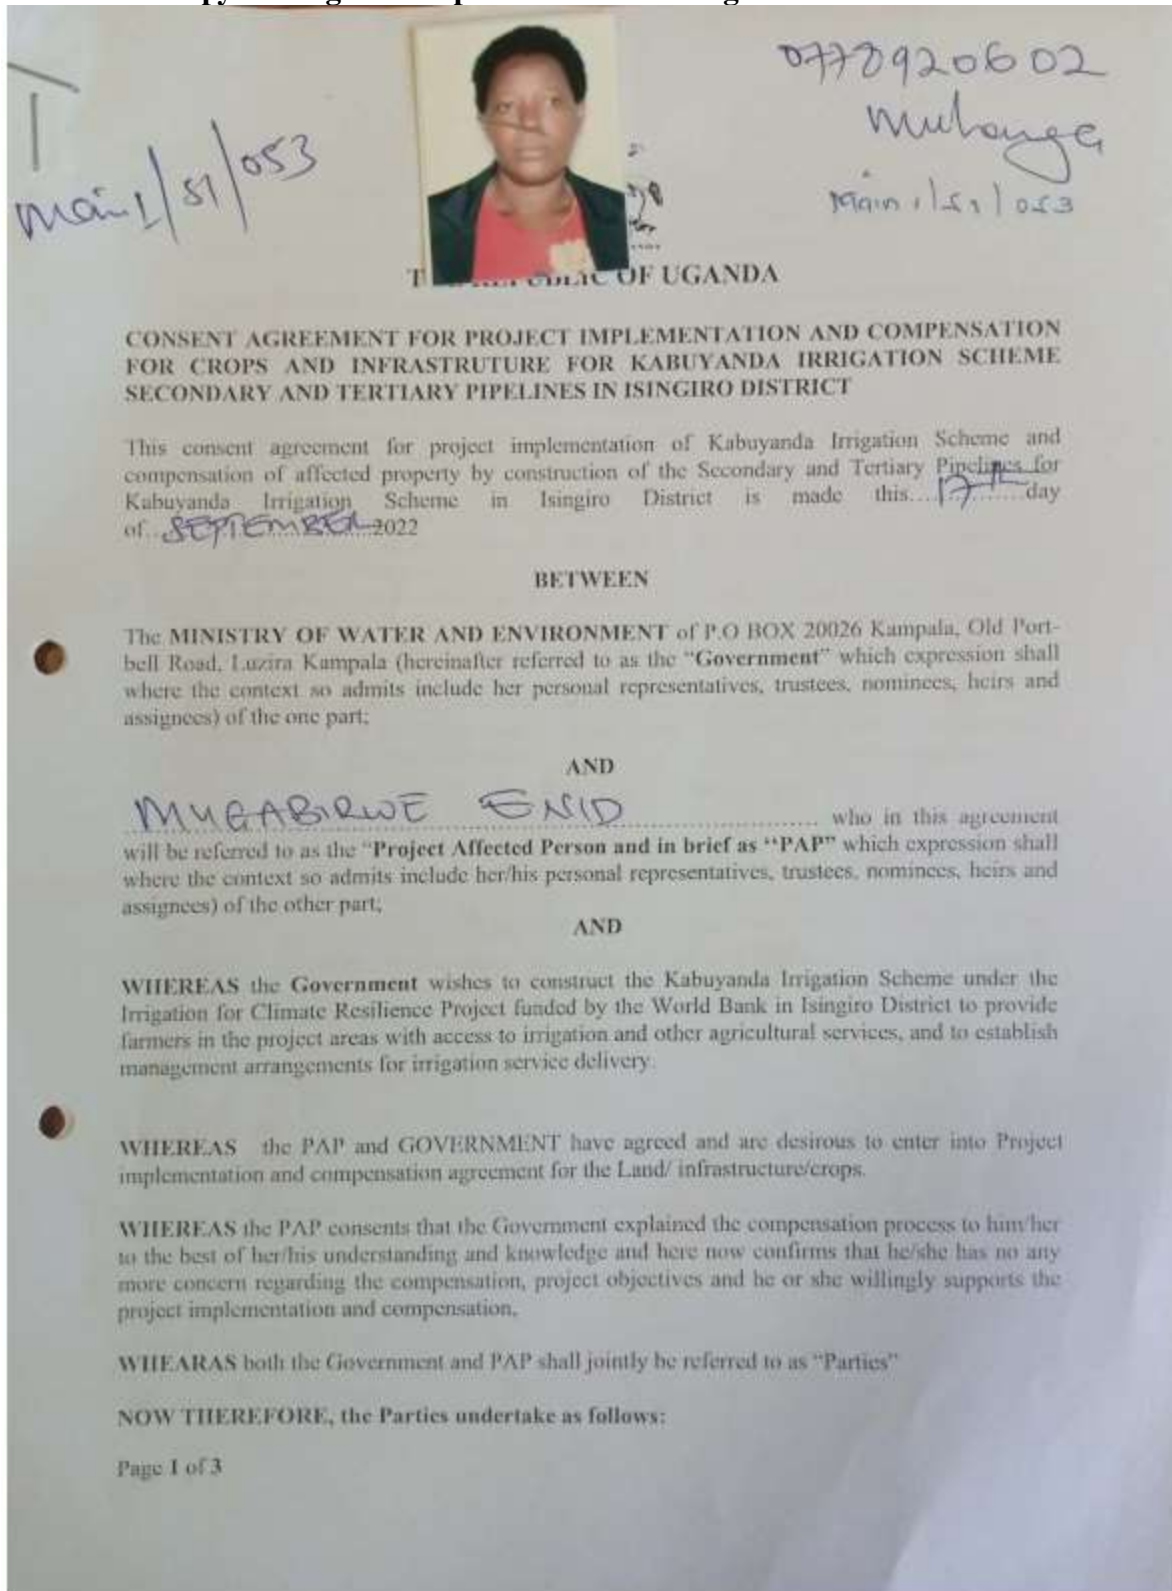 0778920602
Muhanga
Main 1/51/053
Main 1/51/053
REPUBLIC OF UGANDA
CONSENT AGREEMENT FOR PROJECT IMPLEMENTATION AND COMPENSATION
FOR CROPS AND INFRASTRUTURE FOR KABUYANDA IRRIGATION SCHEME
SECONDARY AND TERTIARY PIPELINES IN ISINGIRO DISTRICT
This consent agreement for project implementation of Kabuyanda Irrigation Scheme and
compensation of affected property by construction of the Secondary and Tertiary Pipelines for
Kabuyanda Irrigation Scheme in Isingiro District is made this....17th....day
of...SEPTEMBER...2022
BETWEEN
The MINISTRY OF WATER AND ENVIRONMENT of P.O BOX 20026 Kampala, Old Port-
bell Road, Luzira Kampala (hereinafter referred to as the "Government" which expression shall
where the context so admits include her personal representatives, trustees, nominees, heirs and
assignees) of the one part;
AND
MUGABIRWE ENID .................... who in this agreement
will be referred to as the "Project Affected Person and in brief as “PAP” which expression shall
where the context so admits include her/his personal representatives, trustees, nominees, heirs and
assignees) of the other part;
AND
WHEREAS the Government wishes to construct the Kabuyanda Irrigation Scheme under the
Irrigation for Climate Resilience Project funded by the World Bank in Isingiro District to provide
farmers in the project areas with access to irrigation and other agricultural services, and to establish
management arrangements for irrigation service delivery.
WHEREAS the PAP and GOVERNMENT have agreed and are desirous to enter into Project
implementation and compensation agreement for the Land/ infrastructure/crops.
WHEREAS the PAP consents that the Government explained the compensation process to him/her
to the best of her/his understanding and knowledge and here now confirms that he/she has no any
more concern regarding the compensation, project objectives and he or she willingly supports the
project implementation and compensation,
WHEARAS both the Government and PAP shall jointly be referred to as "Parties"
NOW THEREFORE, the Parties undertake as follows:
Page 1 of 3